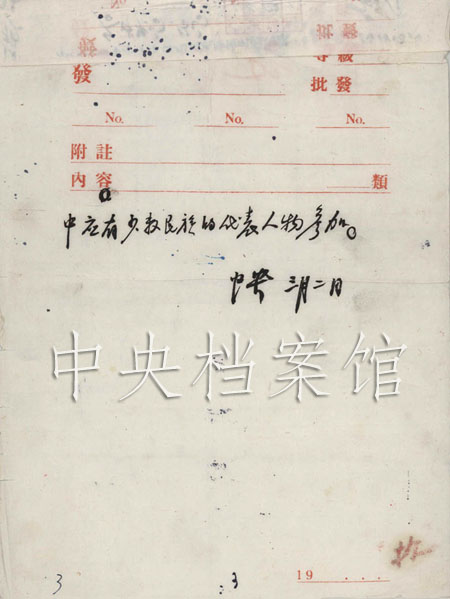 發 批發
No. No. No.
附註
內容 類
中应有少数民族的代表人物参加。
中央 三月二日
中央档案馆
3 3 19